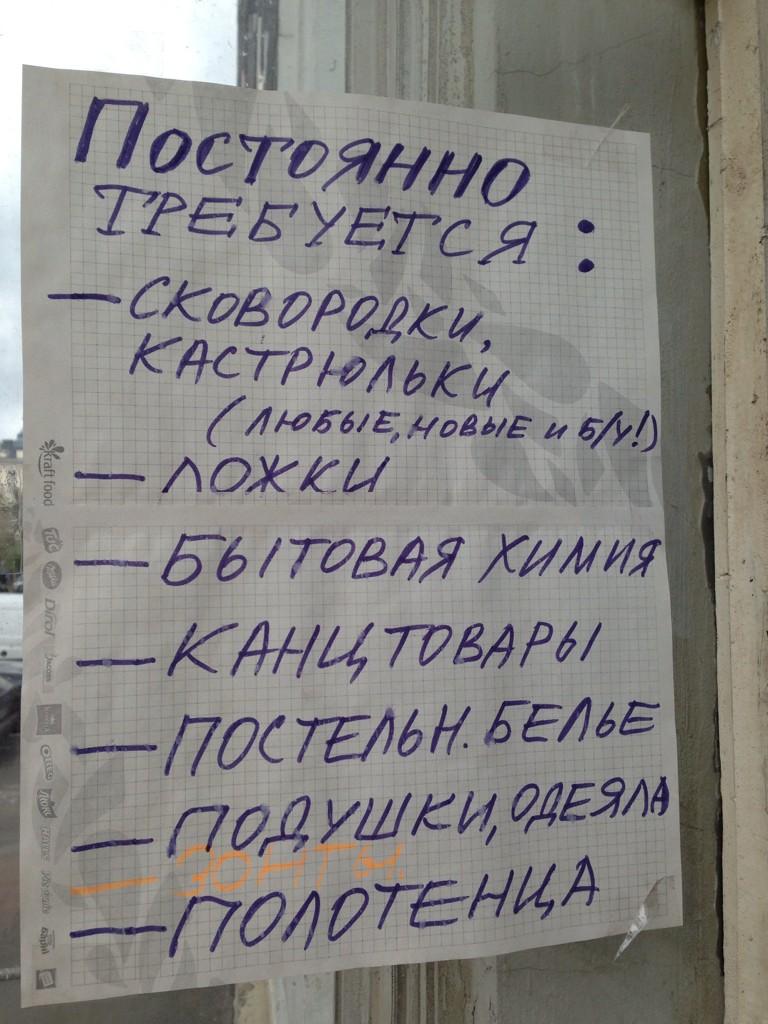 Постоянно
ТРЕБУЕТСЯ :
— СКОВОРОДКИ,
КАСТРЮЛЬКИ
(ЛЮБЫЕ, НОВЫЕ И Б/У!)
— ЛОЖКИ
— БЫТОВАЯ ХИМИЯ
— КАНЦТОВАРЫ
— ПОСТЕЛЬН. БЕЛЬЕ
— ПОДУШКИ, ОДЕЯЛА
— ЗОНТЫ.
— ПОЛОТЕНЦА
kraft food
TUC
Dirol